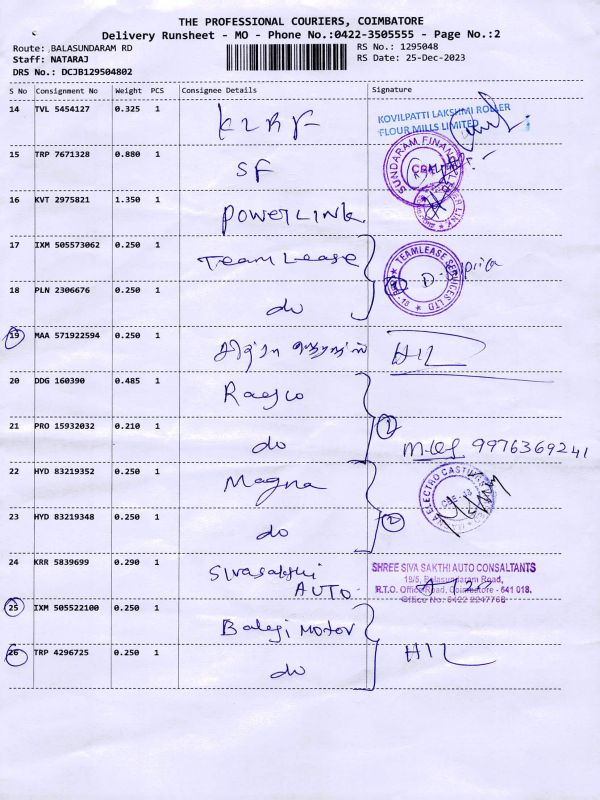 THE PROFESSIONAL COURIERS, COIMBATORE
Delivery Runsheet - MO - Phone No.:0422-3505555 - Page No.:2
Route: BALASUNDARAM RD
RS No.: 1295048
Staff: NATARAJ
RS Date: 25-Dec-2023
DRS No.: DCJB129504802
S No Consignment No Weight PCS Consignee Details Signature
14 TVL 5454127 0.325 1 KLRF
KOVILPATTI LAKSHMI ROLLER
FLOUR MILLS LIMITED
15 TRP 7671328 0.880 1 SF
SUNDARAM FINANCE LTD
16 KVT 2975821 1.350 1 POWERLINK
17 IXM 505573062 0.250 1 TeamLease
TEAMLEASE SERVICES LTD
18 PLN 2306676 0.250 1 do
19 MAA 571922594 0.250 1 HIL
20 DDG 160390 0.485 1
21 PRO 15932032 0.210 1 do
9976369241
22 HYD 83219352 0.250 1 Magna
ELECTRO CASTINGS
23 HYD 83219348 0.250 1 do
24 KRR 5839699 0.290 1 Sivasakthi
AUTO
SHREE SIVA SAKTHI AUTO CONSULTANTS
19/5, Balasundaram Road,
R.T.O. Office Road, Coimbatore - 641 018.
Office No: 0422 2247768
25 IXM 505522100 0.250 1 Balaji Motor
26 TRP 4296725 0.250 1 do HIL